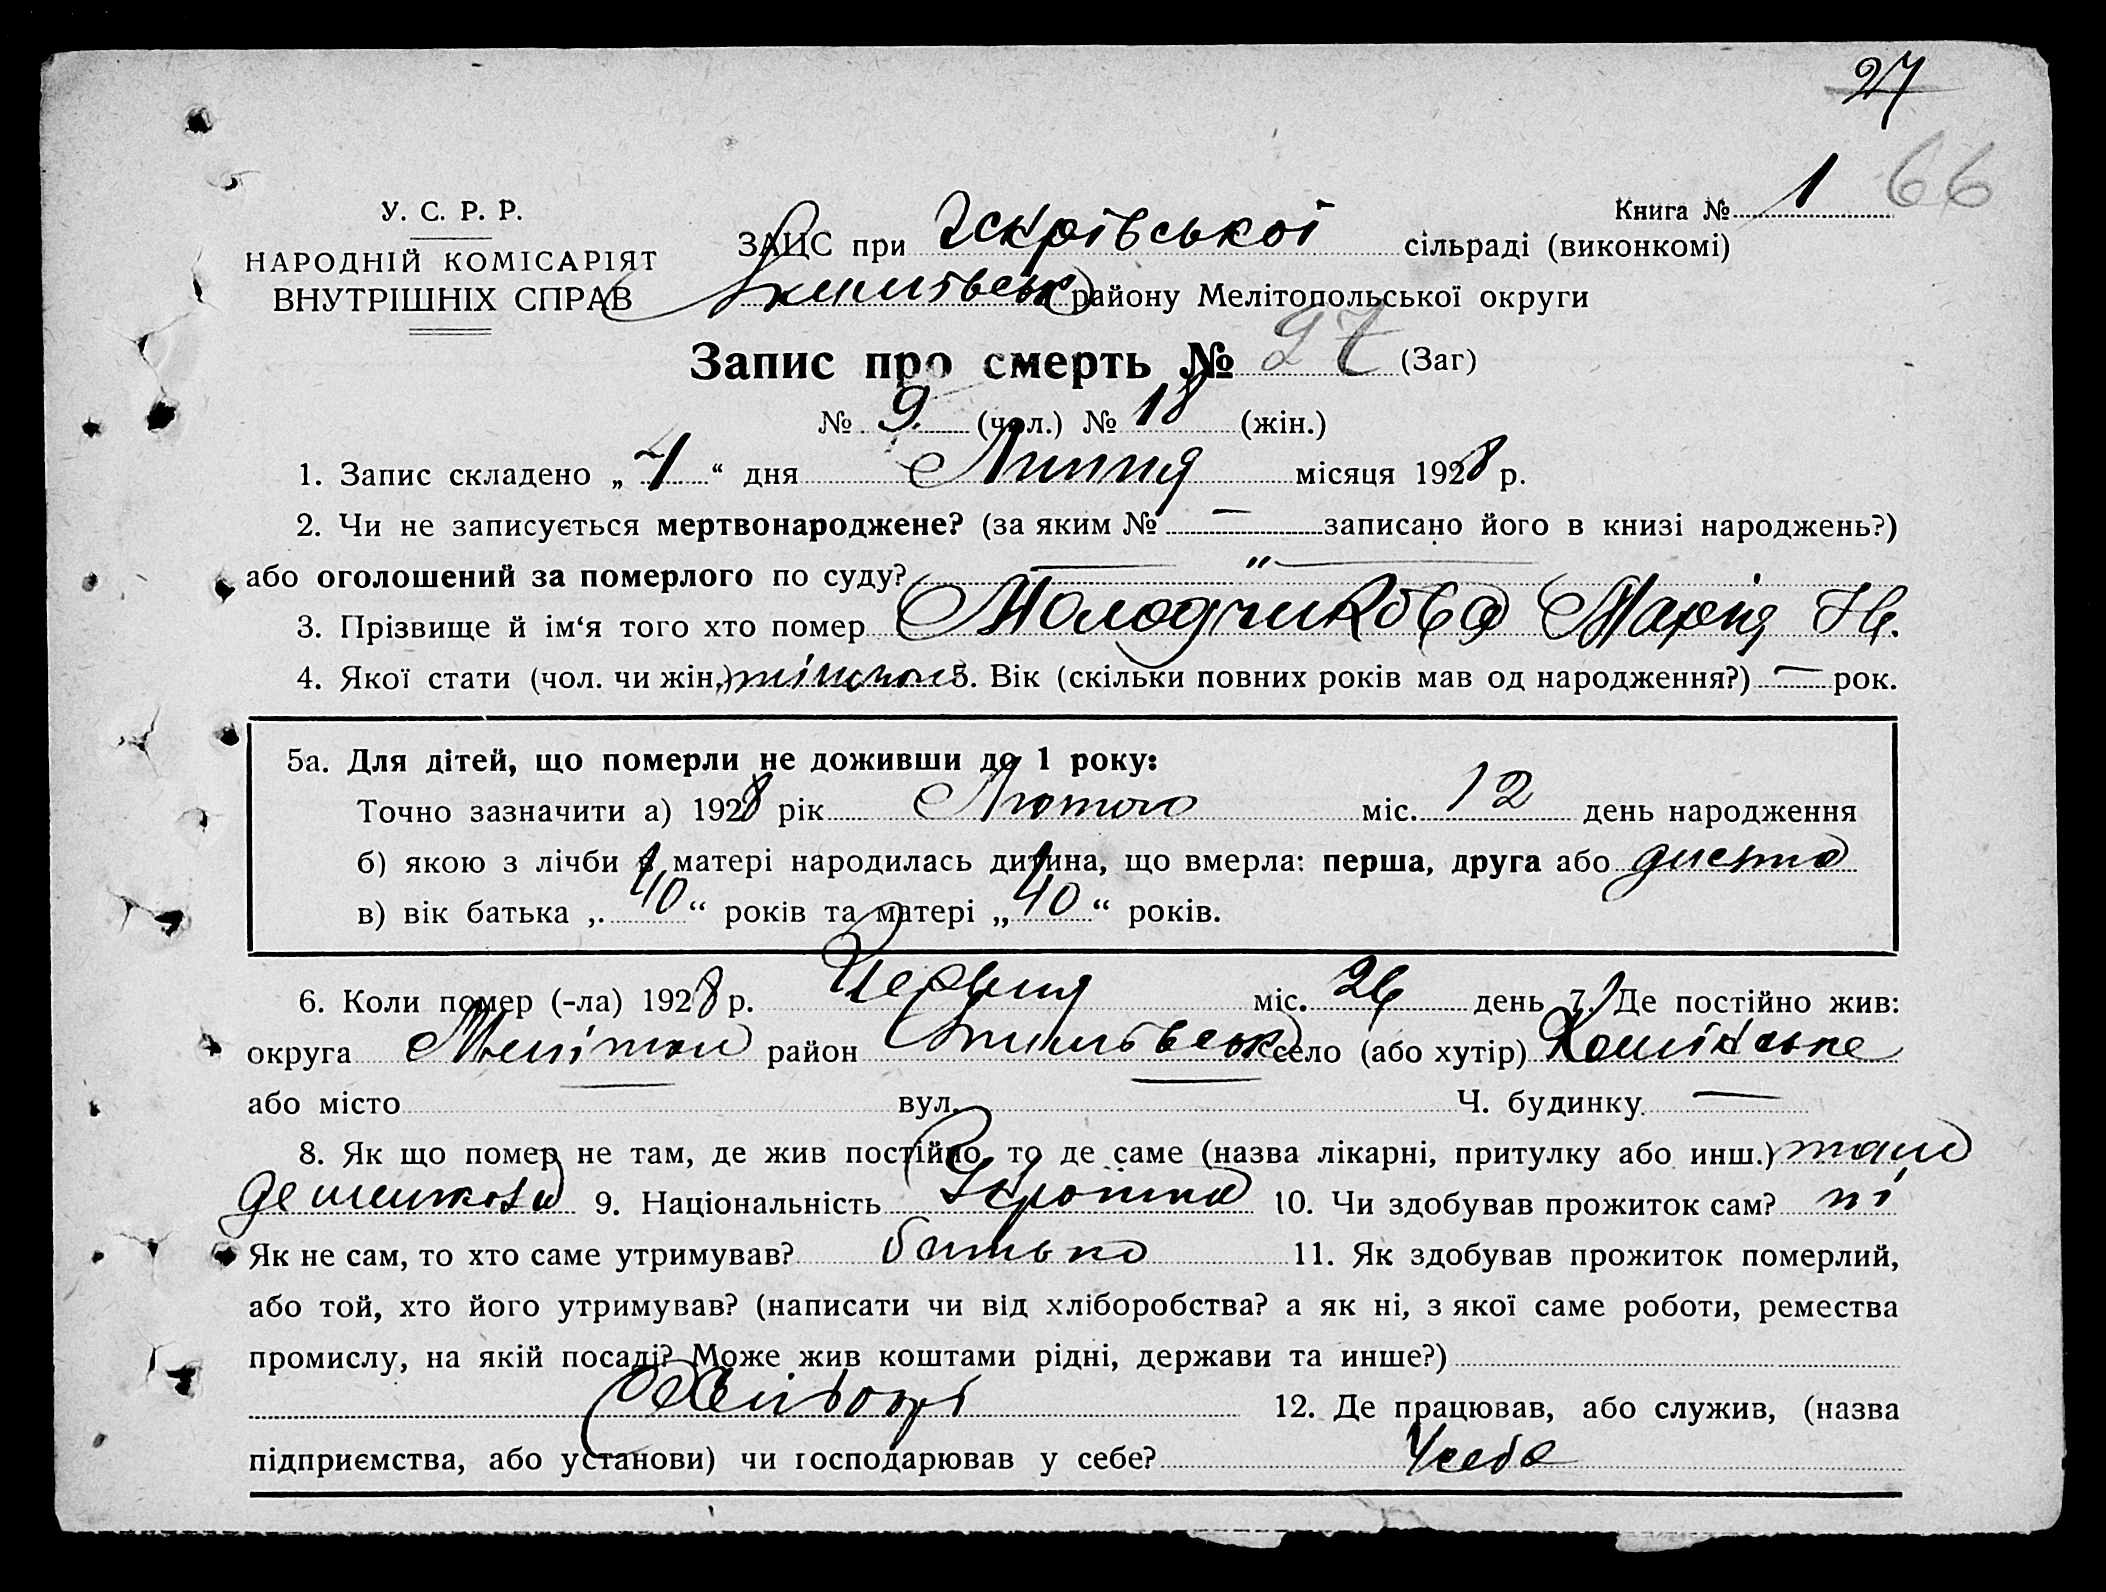 27
66
У. С. Р. Р.
НАРОДНІЙ КОМІСАРІЯТ
ВНУТРІШНІХ СПРАВ
Книга № 1
ЗАЦС при Іскрівської сільраді (виконкомі)
району Мелітопольської округи
Запис про смерть № 27 (Заг)
№ 9 (чол.) № 18 (жін.)
1. Запис складено „ 4 “ дня Липня місяця 1928 р.
2. Чи не записується мертвонароджене? (за яким № — записано його в книзі народжень?)
або оголошений за померлого по суду? — " —
3. Прізвище й ім‘я того хто помер Молодчикова Марія
4. Якої стати (чол. чи жін.) жіночої 5. Вік (скільки повних років мав од народження?) — рок.
5а. Для дітей, що померли не доживши до 1 року:
Точно зазначити а) 1928 рік Лютого міс. 12 день народження
б) якою з лічби в матері народилась дитина, що вмерла: перша, друга або шоста
в) вік батька „ 40 “ років та матері „ 40 “ років.
6. Коли помер (-ла) 1928 р. Червня міс. 26 день 7. Де постійно жив:
округа Мелітоп район село (або хутір)
або місто — вул. — Ч. будинку —
8. Як що помер не там, де жив постійно, то де саме (назва лікарні, притулку або инш.) там
де мешкала 9. Національність Українка 10. Чи здобував прожиток сам? ні
Як не сам, то хто саме утримував? батько 11. Як здобував прожиток померлий,
або той, хто його утримував? (написати чи від хліборобства? а як ні, з якої саме роботи, ремества
промислу, на якій посаді? Може жив коштами рідні, держави та инше?)
12. Де працював, або служив, (назва
підприємства, або установи) чи господарював у себе? У себе